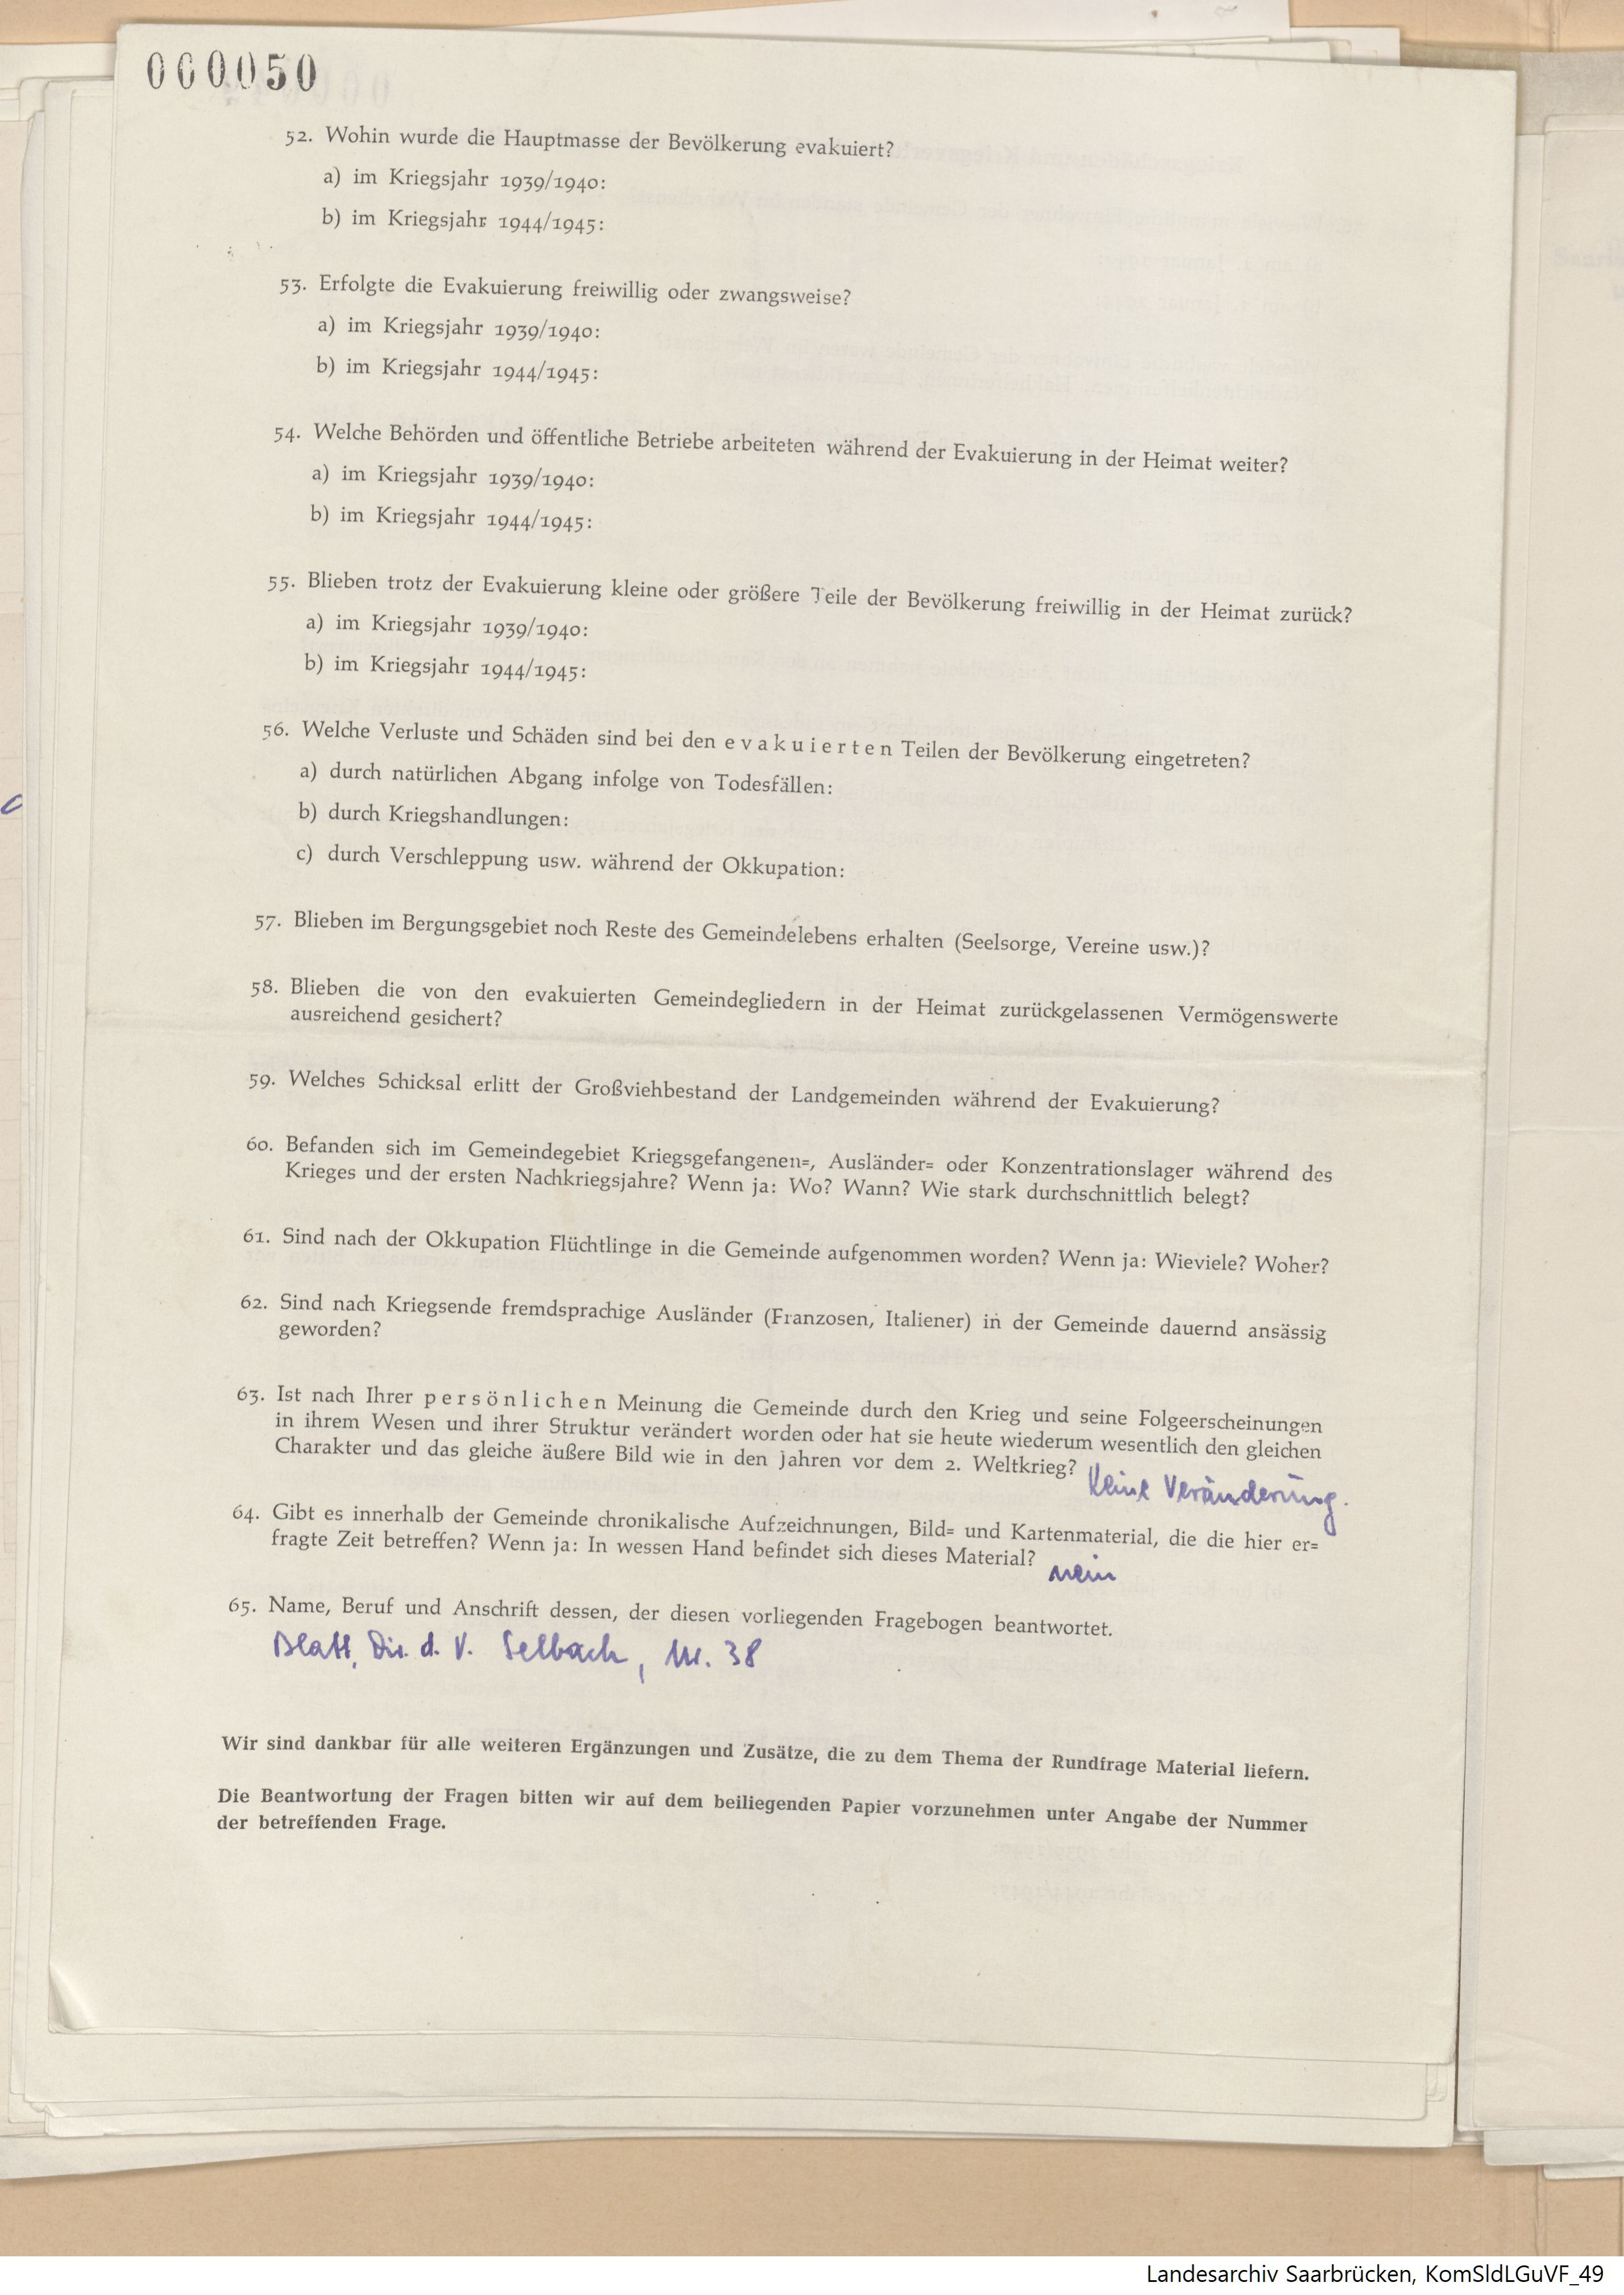 000050
52. Wohin wurde die Hauptmasse der Bevölkerung evakuiert?
a) im Kriegsjahr 1939/1940:
b) im Kriegsjahr 1944/1945:
53. Erfolgte die Evakuierung freiwillig oder zwangsweise?
a) im Kriegsjahr 1939/1940:
b) im Kriegsjahr 1944/1945:
54. Welche Behörden und öffentliche Betriebe arbeiteten während der Evakuierung in der Heimat weiter?
a) im Kriegsjahr 1939/1940:
b) im Kriegsjahr 1944/1945:
55. Blieben trotz der Evakuierung kleine oder größere Teile der Bevölkerung freiwillig in der Heimat zurück?
a) im Kriegsjahr 1939/1940:
b) im Kriegsjahr 1944/1945:
56. Welche Verluste und Schäden sind bei den evakuierten Teilen der Bevölkerung eingetreten?
a) durch natürlichen Abgang infolge von Todesfällen:
b) durch Kriegshandlungen:
c) durch Verschleppung usw. während der Okkupation:
57. Blieben im Bergungsgebiet noch Reste des Gemeindelebens erhalten (Seelsorge, Vereine usw.)?
58. Blieben die von den evakuierten Gemeindegliedern in der Heimat zurückgelassenen Vermögenswerte
ausreichend gesichert?
59. Welches Schicksal erlitt der Großviehbestand der Landgemeinden während der Evakuierung?
60. Befanden sich im Gemeindegebiet Kriegsgefangenen=, Ausländer= oder Konzentrationslager während des
Krieges und der ersten Nachkriegsjahre? Wenn ja: Wo? Wann? Wie stark durchschnittlich belegt?
61. Sind nach der Okkupation Flüchtlinge in die Gemeinde aufgenommen worden? Wenn ja: Wieviele? Woher?
62. Sind nach Kriegsende fremdsprachige Ausländer (Franzosen, Italiener) in der Gemeinde dauernd ansässig
geworden?
63. Ist nach Ihrer persönlichen Meinung die Gemeinde durch den Krieg und seine Folgeerscheinungen
in ihrem Wesen und ihrer Struktur verändert worden oder hat sie heute wiederum wesentlich den gleichen
Charakter und das gleiche äußere Bild wie in den Jahren vor dem 2. Weltkrieg? Keine Veränderung.
64. Gibt es innerhalb der Gemeinde chronikalische Aufzeichnungen, Bild= und Kartenmaterial, die die hier er=
fragte Zeit betreffen? Wenn ja: In wessen Hand befindet sich dieses Material? nein
65. Name, Beruf und Anschrift dessen, der diesen vorliegenden Fragebogen beantwortet.
Blatt, Dir. d. V. Selbach, Nr. 38
Wir sind dankbar für alle weiteren Ergänzungen und Zusätze, die zu dem Thema der Rundfrage Material liefern.
Die Beantwortung der Fragen bitten wir auf dem beiliegenden Papier vorzunehmen unter Angabe der Nummer
der betreffenden Frage.
Landesarchiv Saarbrücken, KomSldLGuVF_49